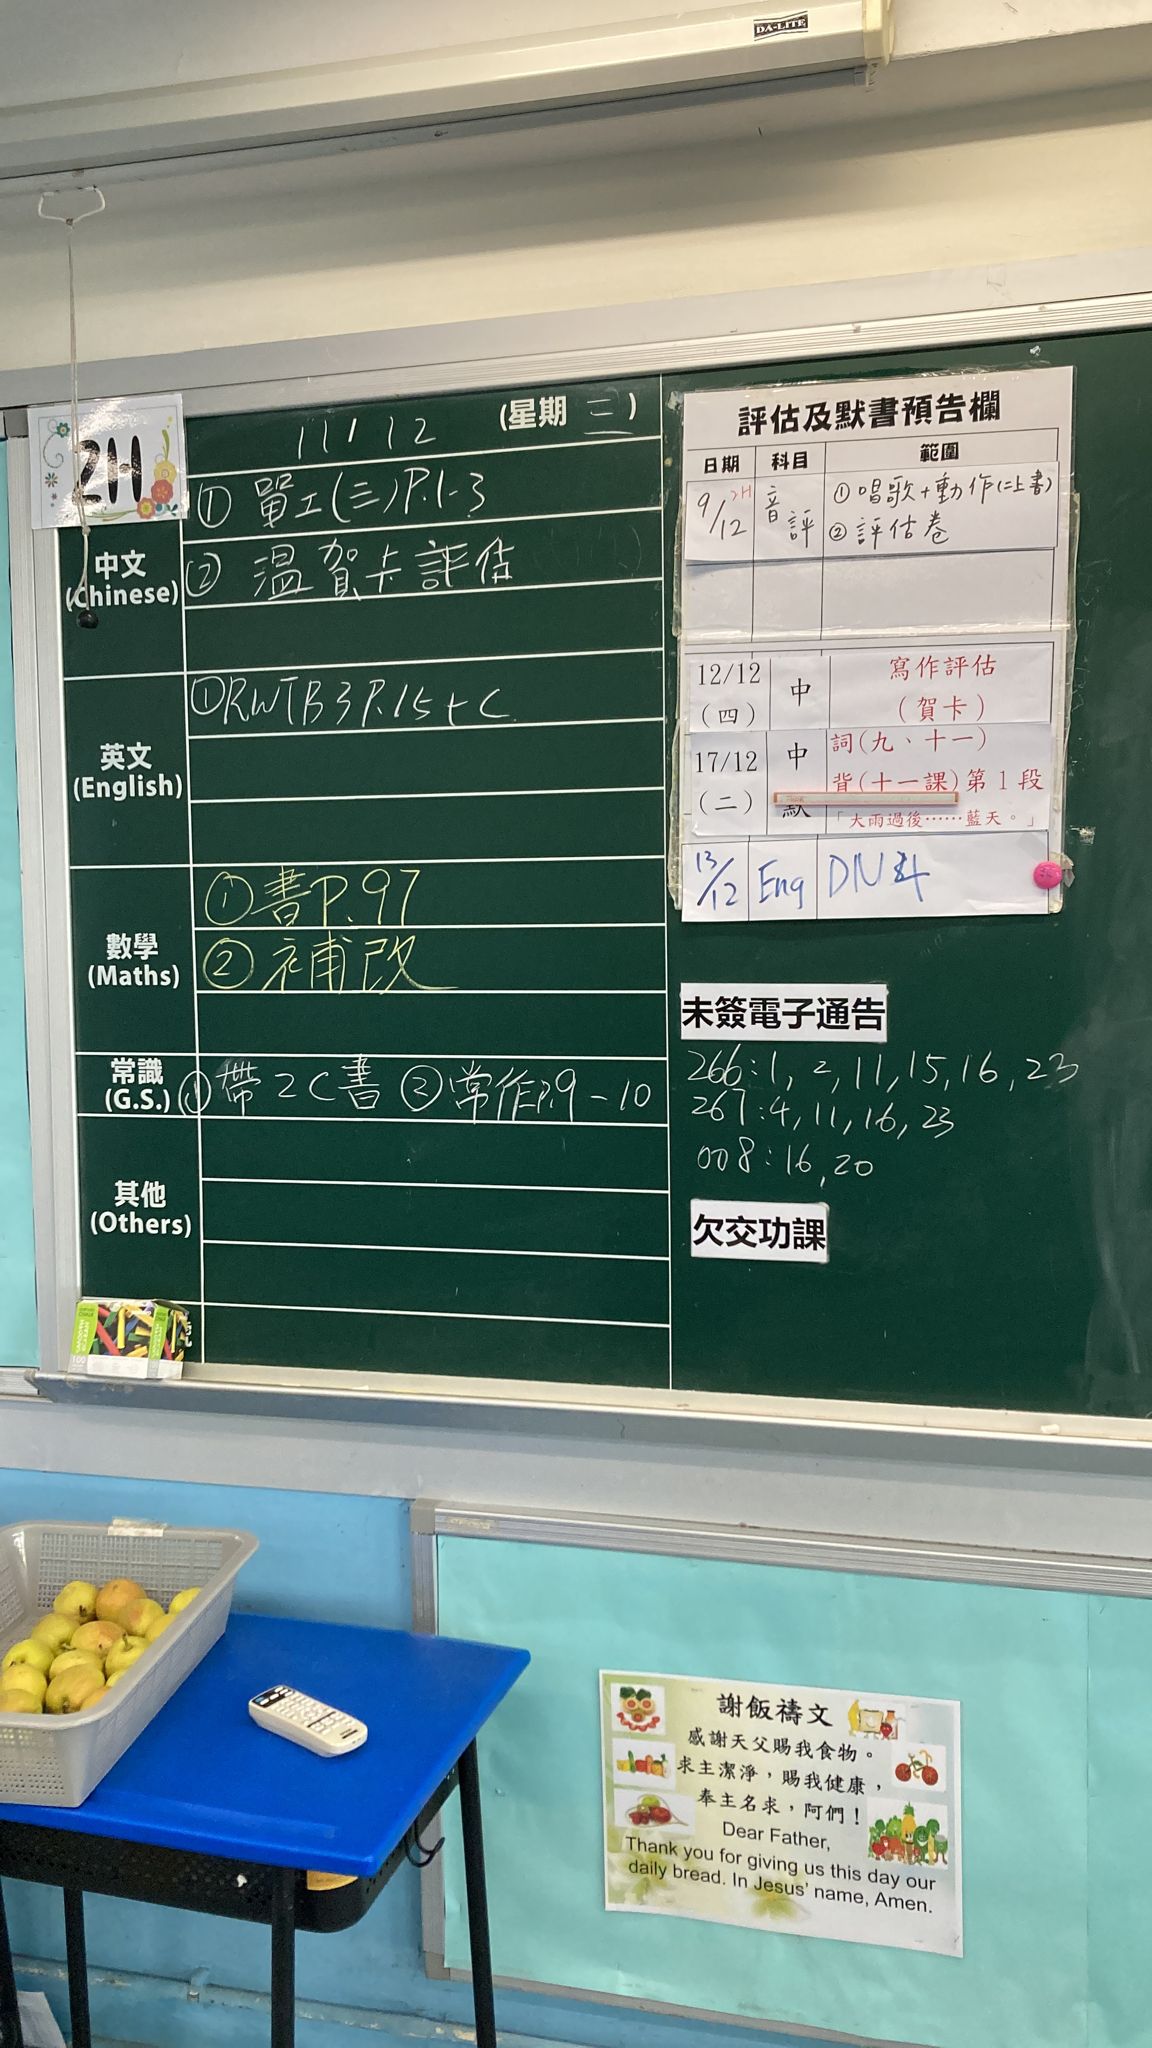 DA-LITE
2H
11/12 (星期三)
中文
(Chinese)
① 單工(三)P.1-3
② 溫賀卡評估
英文
(English)
①RWTB3 P.15+C
數學
(Maths)
①書P.97
②補改
常識
(G.S.)
①帶2C書 ②常作P.9-10
其他
(Others)
評估及默書預告欄
日期 科目 範圍
9/12 2H 音評 ①唱歌+動作(二上書)
②評估卷
12/12 (四) 中 寫作評估
(賀卡)
17/12 (二) 中默 詞(九、十一)
背(十一課)第1段
「大雨過後……藍天。」
13/12 Eng DN4
未簽電子通告
266:1, 2, 11, 15, 16, 23
267:4, 11, 16, 23
008:16, 20
欠交功課
100
謝飯禱文
感謝天父賜我食物。
求主潔淨,賜我健康,
奉主名求,阿們!
Dear Father,
Thank you for giving us this day our
daily bread. In Jesus' name, Amen.